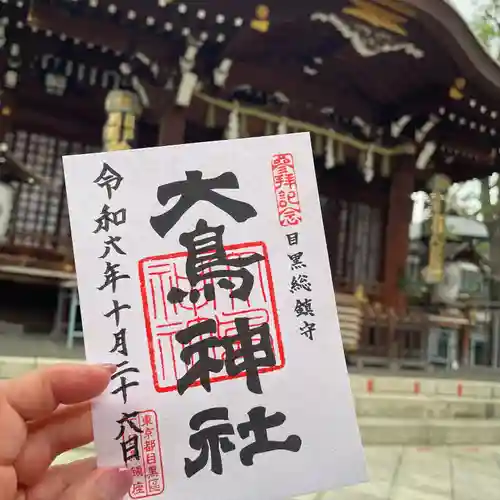 参拝記念
目黒総鎮守
大鳥神社
令和六年十月二十六日
東京都目黒区
鎮座